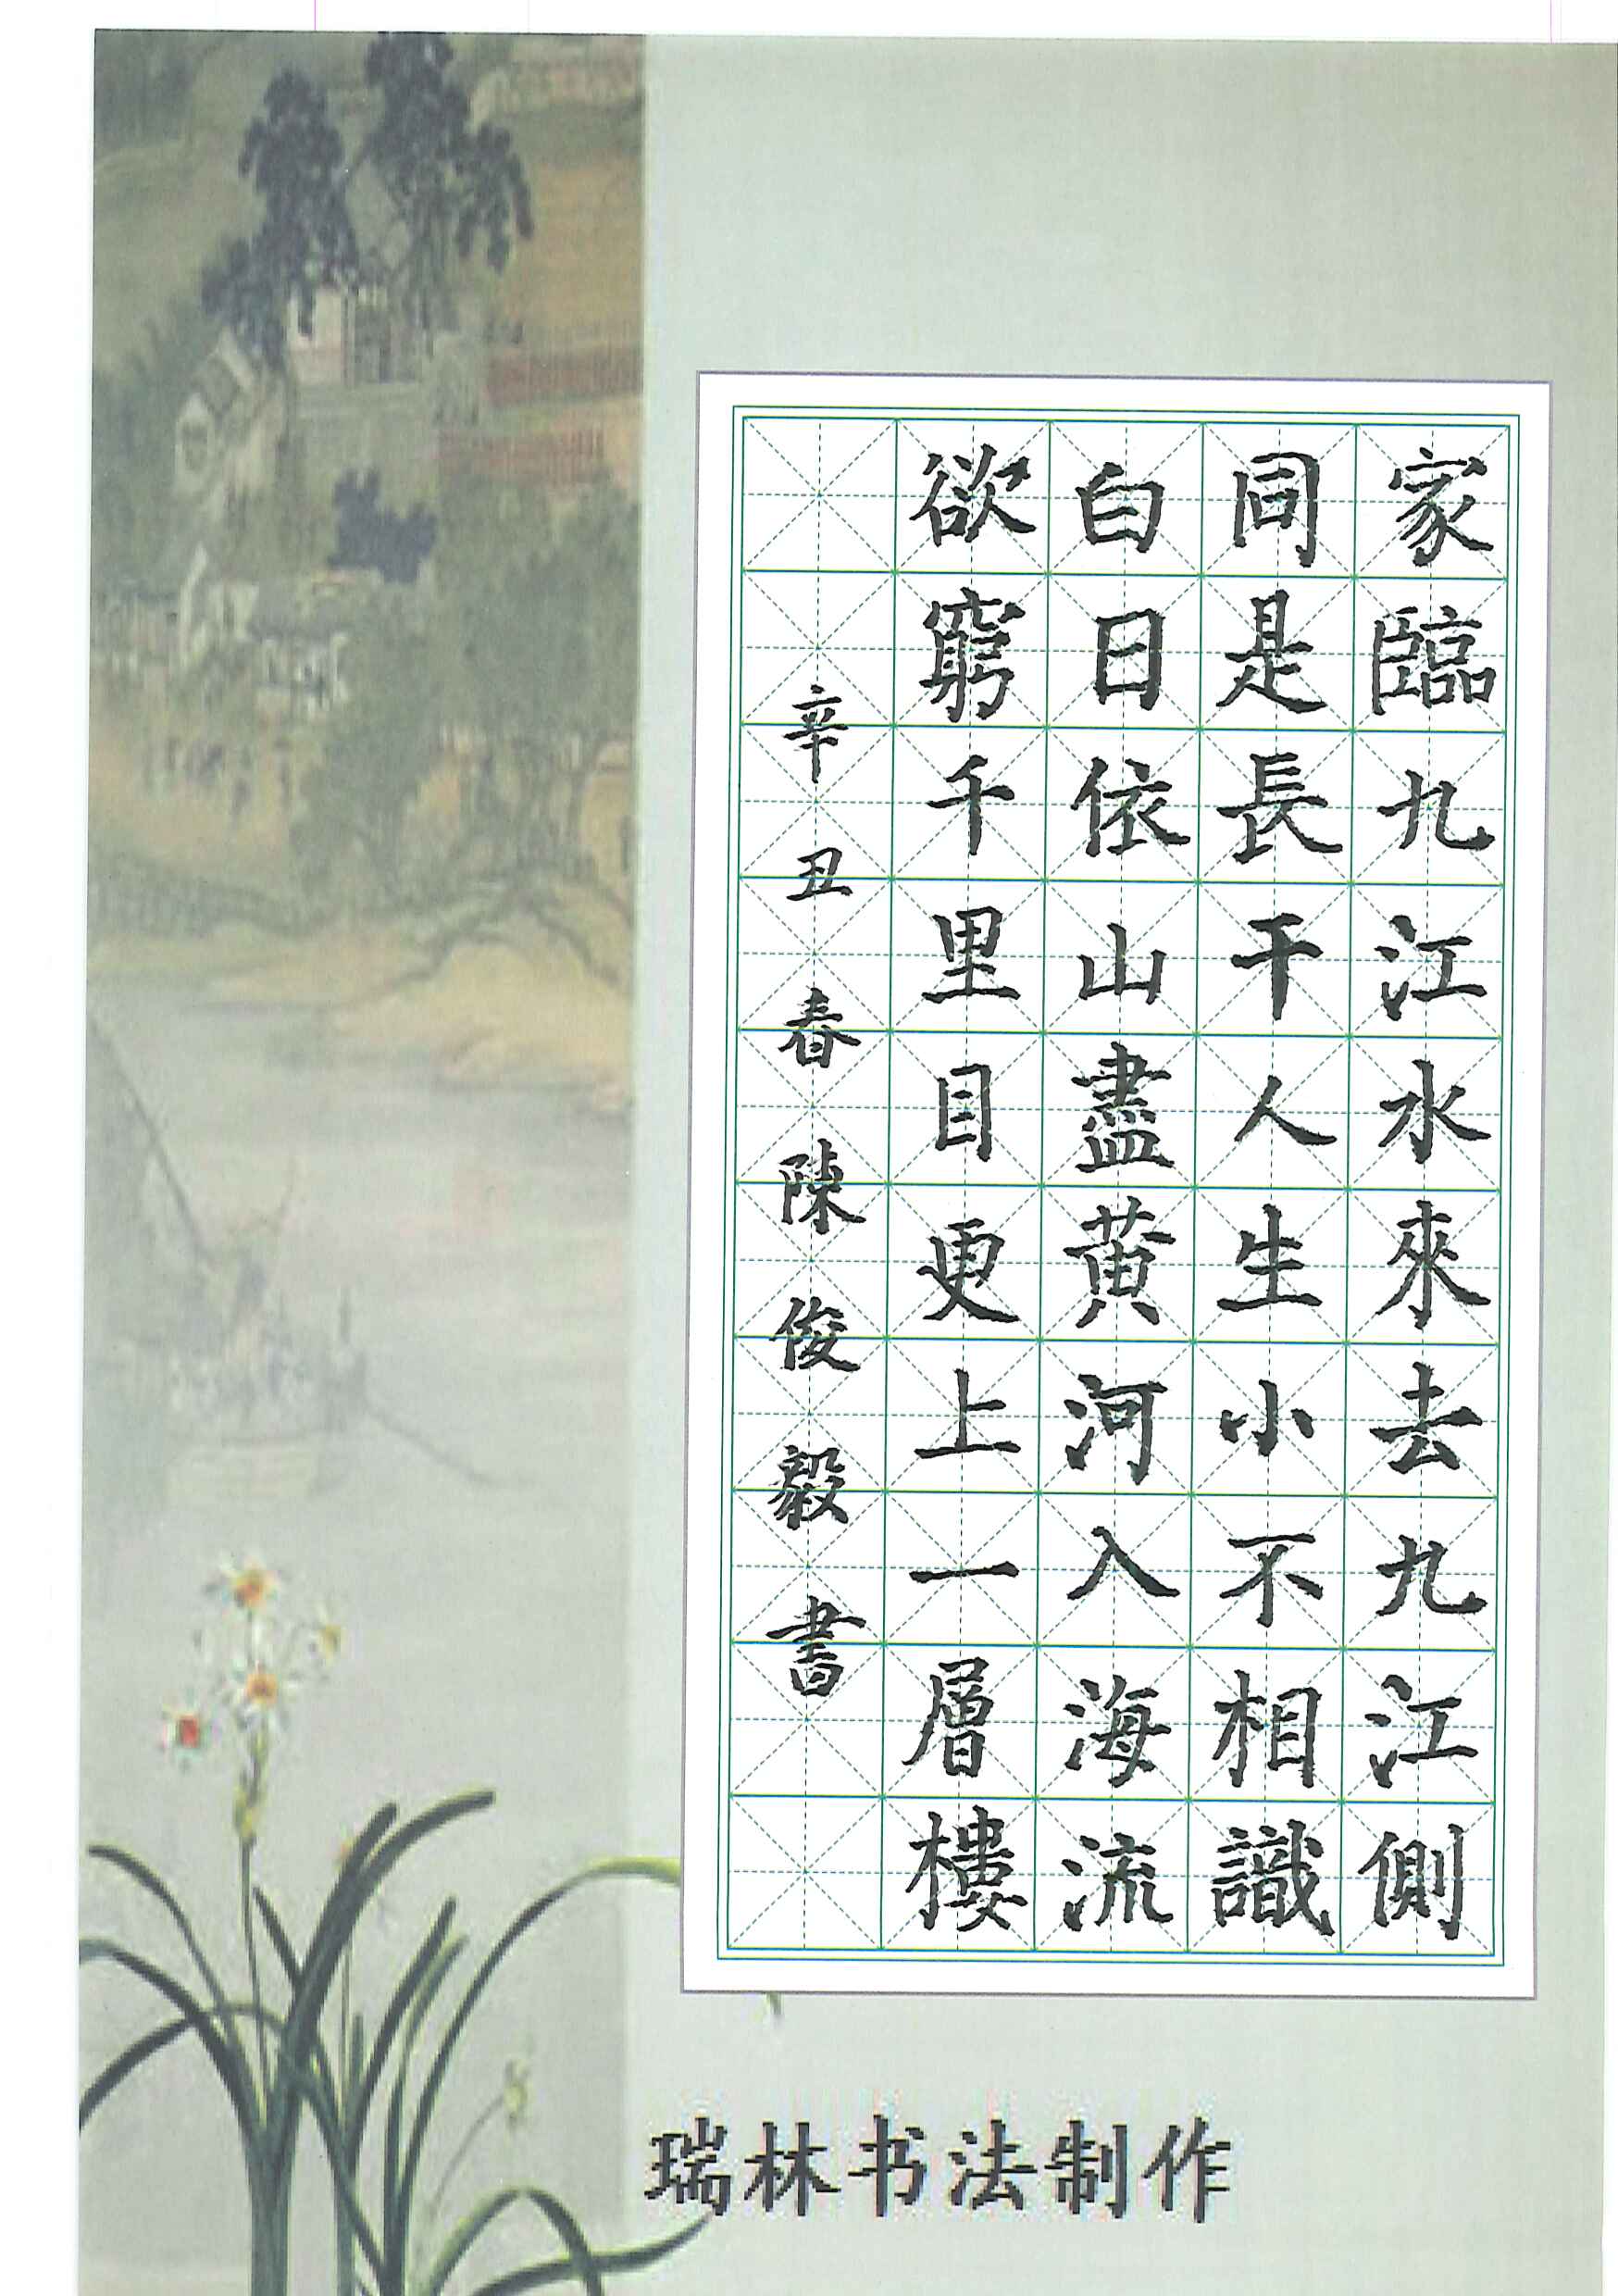 家臨九江水來去九江側
同是長干人生小不相識
白日依山盡黄河入海流
欲窮千里目更上一層樓
辛丑春陳俊毅書
瑞林书法制作